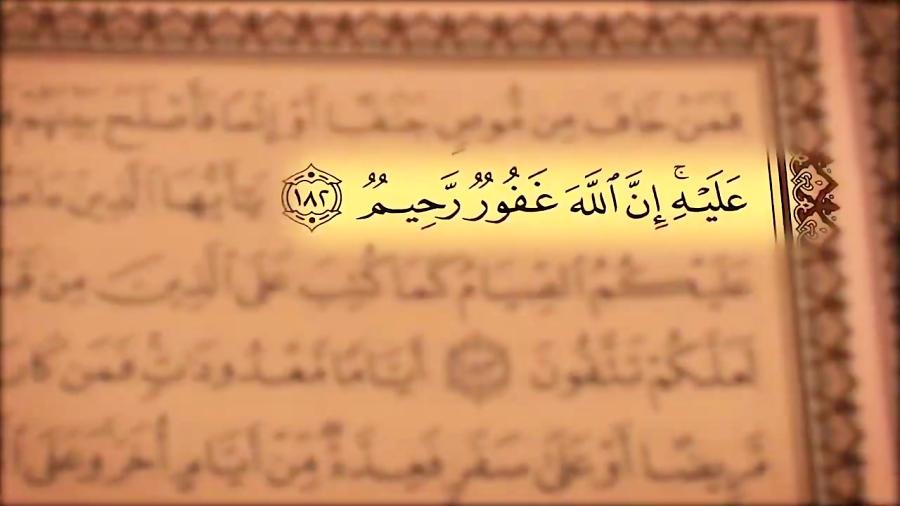 فَمَنْ خَافَ مِن مُّوصٍ جَنَفًا أَوْ إِثْمًا فَأَصْلَحَ بَيْنَهُمْ
عَلَيْهِ ۚ إِنَّ ٱللَّهَ غَفُورٌ رَّحِيمٌ ١٨٢ يَٰٓأَيُّهَا ٱلَّذِينَ
عَلَيْكُمُ ٱلصِّيَامُ كَمَا كُتِبَ عَلَى ٱلَّذِينَ مِن
لَعَلَّكُمْ تَتَّقُونَ ١٨٣ أَيَّامًا مَّعْدُودَٰتٍ ۚ فَمَن كَانَ
مَّرِيضًا أَوْ عَلَىٰ سَفَرٍ فَعِدَّةٌ مِّنْ أَيَّامٍ أُخَرَ ۚ وَعَلَى